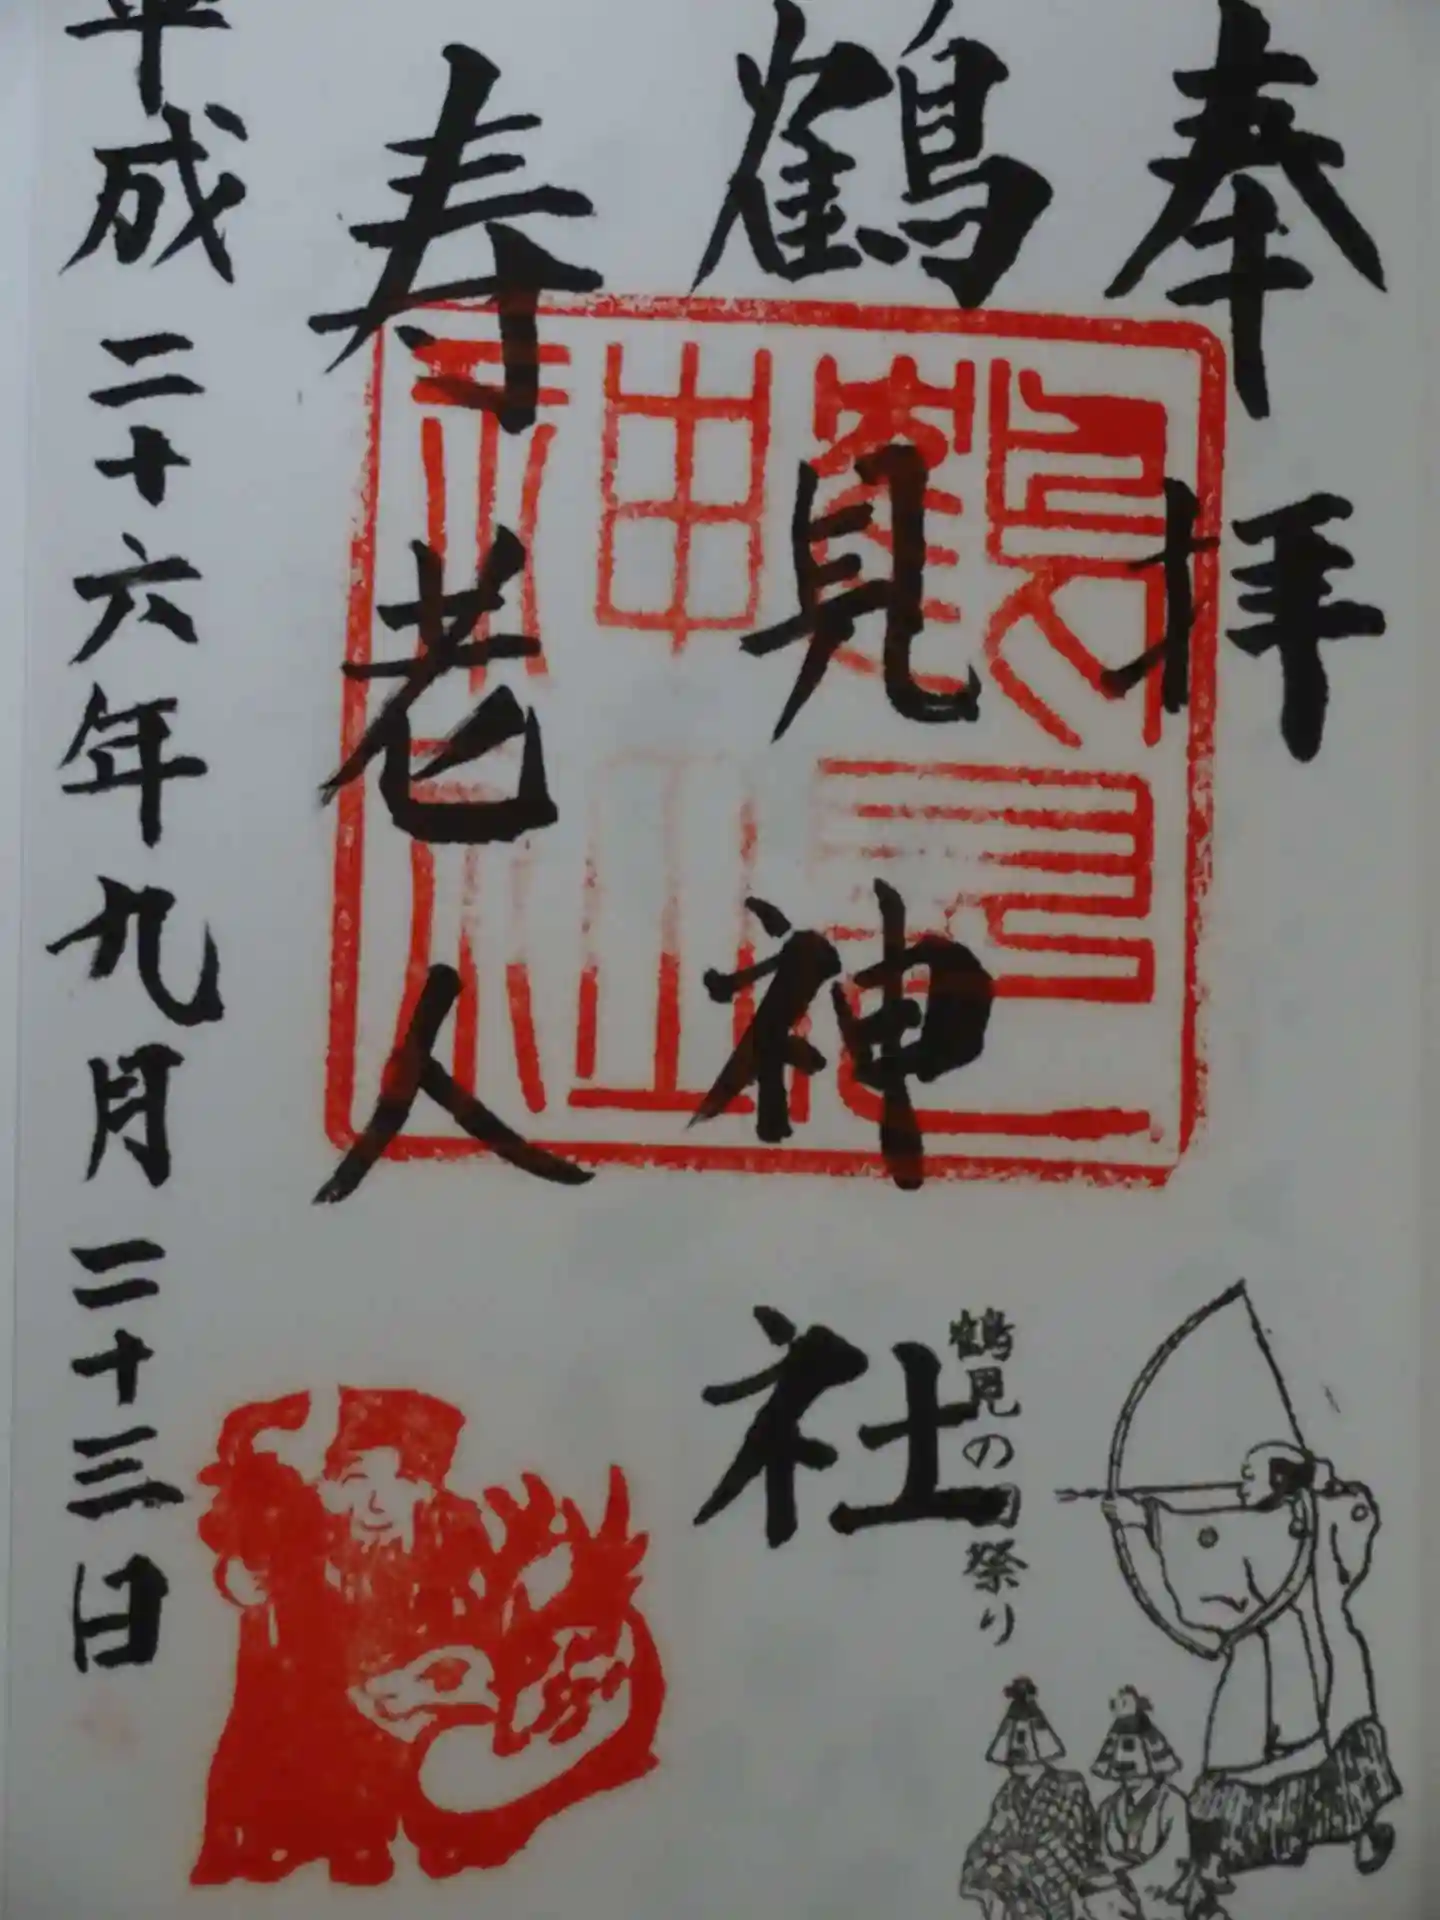 奉拝
鶴見神社
鶴見の田祭り
寿老人
平成二十六年九月二十三日
鶴見神社